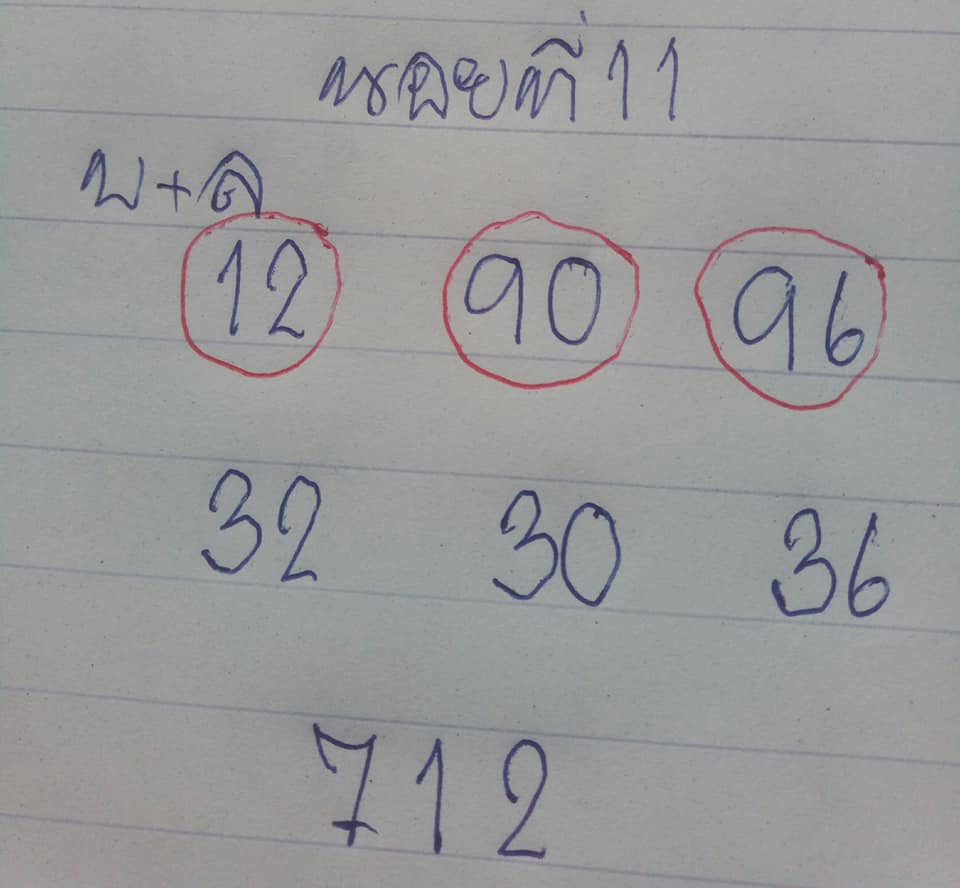 หฉยที่ 11
บ+ล
12 90 96
32 30 36
712